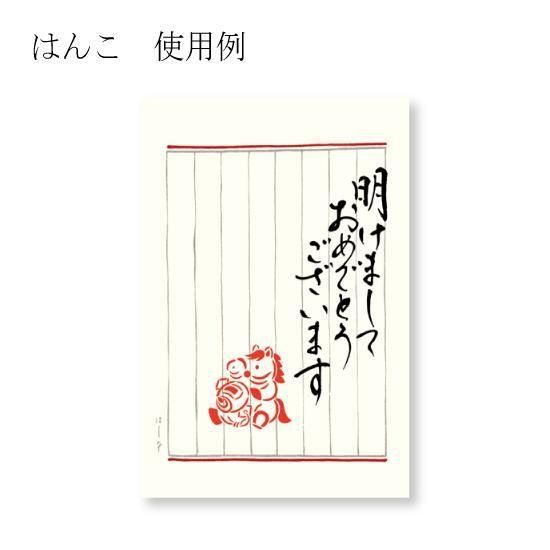 はんこ　使用例
明けまして
おめでとう
ございます